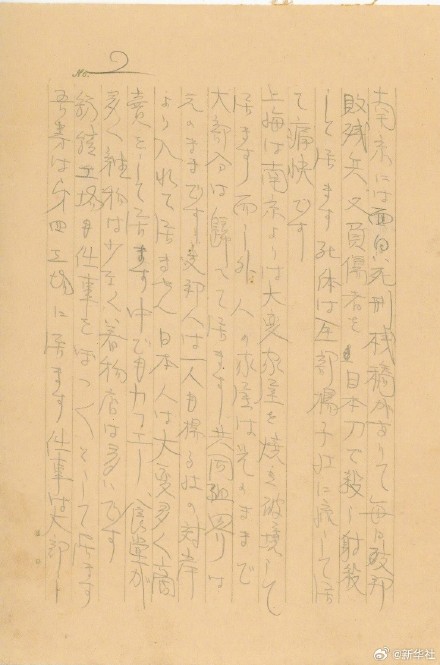 No. 2
南京には面白死刑桟橋がありて毎日支那
敗残兵又負傷者を日本刀で殺し射殺
して居ます死体は全部揚子江に流して居
て痛快です
上海は南京よりは大変家屋を焼き破壊して
居ます而し外人の家屋は元のままで
大部分は歸って居ます共同租界は
元のままです支那人は一人も揚子江の対岸
より入れて居ません日本人は大変多く商
売をして居ます中でもカフエー食堂が
多く雑物は少なく着物店は多いです
紡績工場も仕事をぼつ〱して居ます
は第四工場に居ます仕事は大部
@新华社